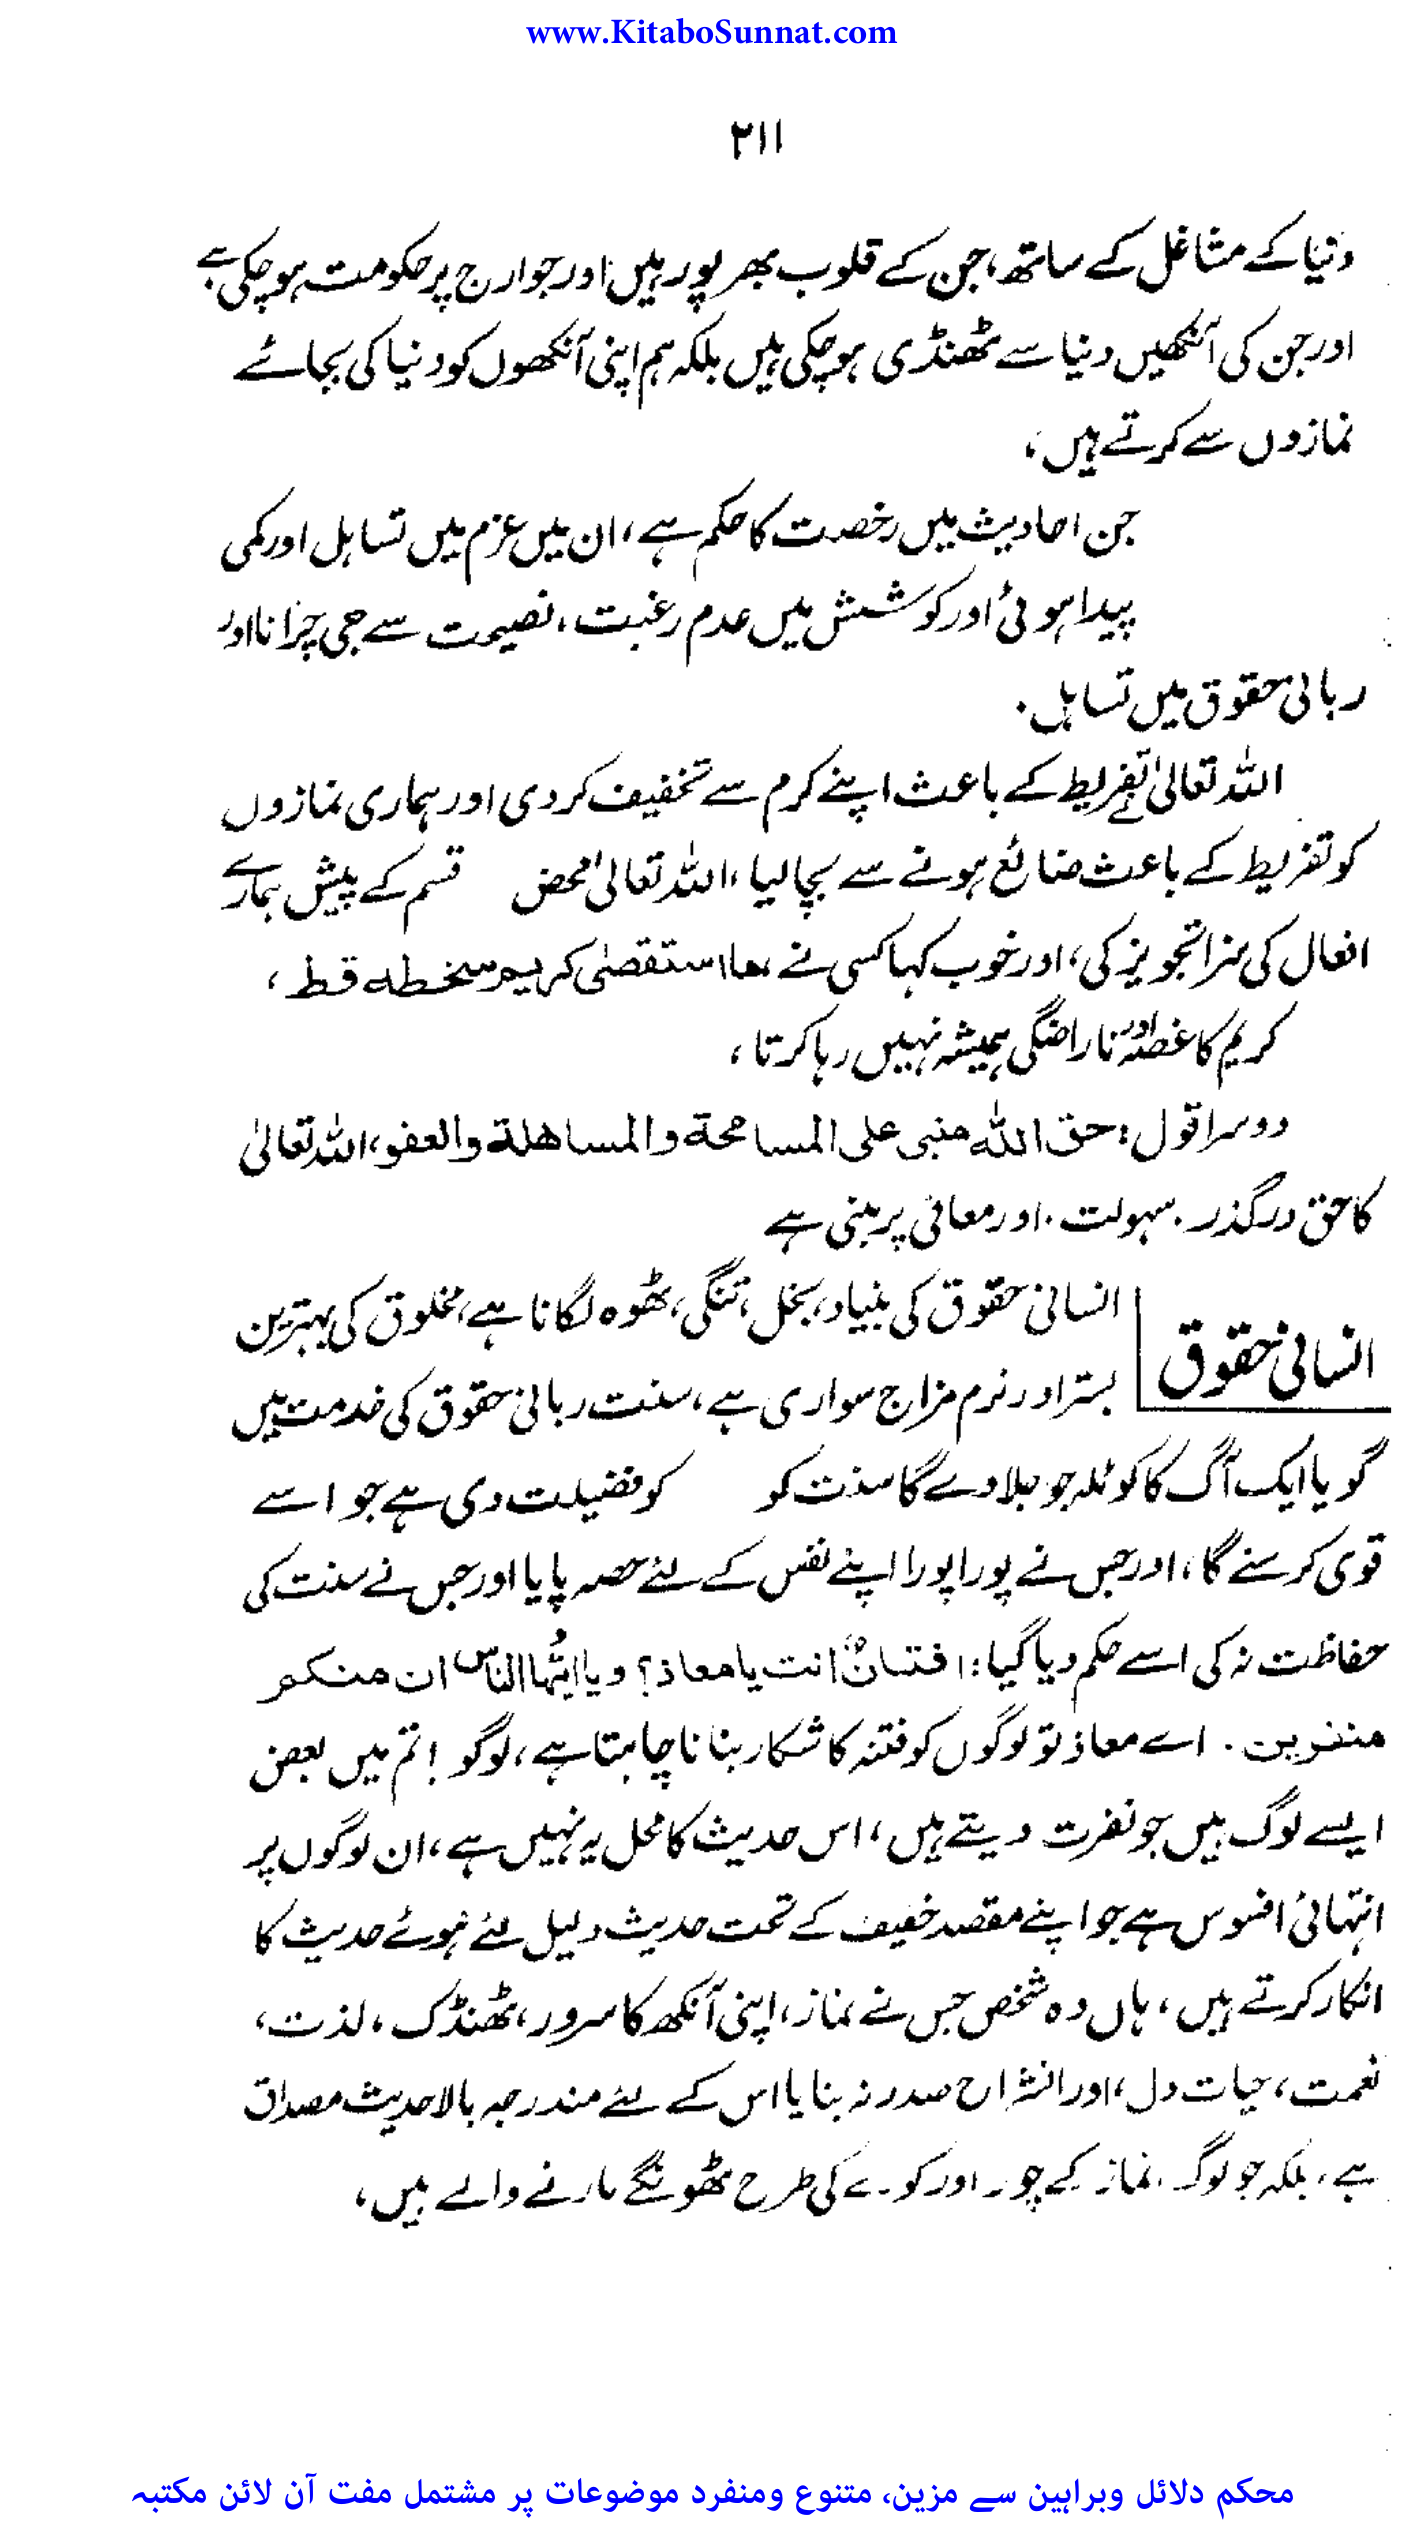 www.KitaboSunnat.com
۲۱۱
دنیا کے مشاغل کے ساتھ، جن کے قلوب بھر پور ہیں اور جوارج پر حکومت ہو چکی ہے
اور جن کی آنکھیں دنیا سے ٹھنڈی ہو چکی ہیں بلکہ ہم اپنی آنکھوں کو دنیا کی بجائے
نمازوں سے کرتے ہیں،
جن احادیث میں رخصت کا حکم ہے، ان میں عزم میں تساہل اور کمی
پیدا ہوئی اور کوشش میں عدم رغبت، نصیحت سے جی چرانا اور
ربانی حقوق میں تساہل.
اللہ تعالیٰ نے تفریط کے باعث اپنے کرم سے تخفیف کر دی اور ہماری نمازوں
کو تفریط کے باعث ضائع ہونے سے بچا لیا، اللہ تعالیٰ محض قسم کے پیش ہمارے
افعال کی سزا تجویز کی، اور خوب کہا کسی نے ،ما استقصیٰ کریم سخطه قط،
کریم کا غصہ اور ناراضگی ہمیشہ نہیں رہا کرتا،
دوسرا قول: حق اللہ منبی علی المسامحة والمساهلة والعفو، اللہ تعالیٰ
کا حق درگذر. سہولت. اور معافی پر مبنی ہے
انسانی حقوق
انسانی حقوق کی بنیاد، بخل، تنگی، ٹھوہ لگانا ہے، مخلوق کی بہترین
بستر اور نرم مزاج سواری ہے، سنت ربانی حقوق کی خدمت میں
گویا ایک آگ کا کوئلہ جو جلا دے گا سنت کو کو فضیلت دی ہے جو اسے
قوی کرسنے گا، اور جس نے پورا پورا اپنے نفس کے لئے حصہ پایا اور جس نے سنت کی
حفاظت نہ کی اسے حکم دیا گیا: افتانٌ انت یا معاذ؟ ویا ایُّها الناس ان منکم
منفرین. اے معاذ تو لوگوں کو فتنہ کا شکار بنانا چاہتا ہے، لوگو! تم میں بعض
ایسے لوگ ہیں جو نفرت دیتے ہیں، اس حدیث کا محل یہ نہیں ہے، ان لوگوں پر
انتہائی افسوس ہے جو اپنے مقصد خفیف کے تحت حدیث دلیل لئے ہوئے حدیث کا
انکار کرتے ہیں، ہاں وہ شخص جس نے نماز، اپنی آنکھ کا سرور، ٹھنڈک، لذت،
نعمت، حیات دل، اور انشراح صدر نہ بنایا اس کے لئے مندرجہ بالا حدیث مصداق
ہے، بلکہ جو لوگ نماز کے چور اور کوے کی طرح ٹھونگے مارنے والے ہیں،
محکم دلائل وبراہین سے مزین، متنوع ومنفرد موضوعات پر مشتمل مفت آن لائن مکتبہ